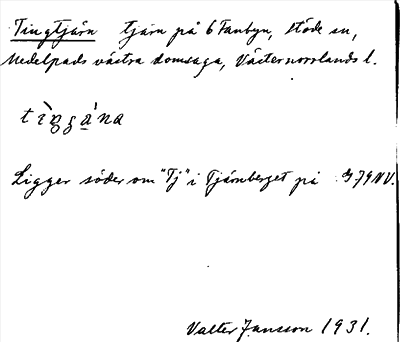 Tingtjärn tjärn på 6 Fanbyn, Stöde sn,
Medelpads västra domsaga, Västernorrlands l.
Ligger söder om "Tj" i Tjärnberget på G79NV.
Valter Jansson 1931.